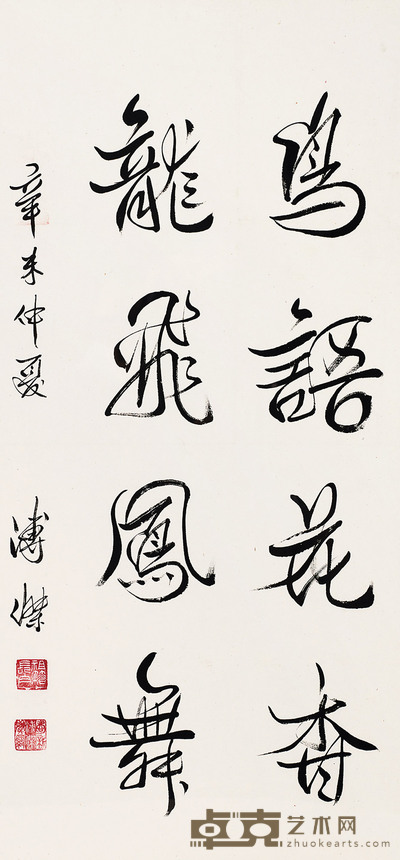 鳥語花香
龍飛鳳舞
辛未仲夏
溥傑
卓克艺术网
zhuokearts.com